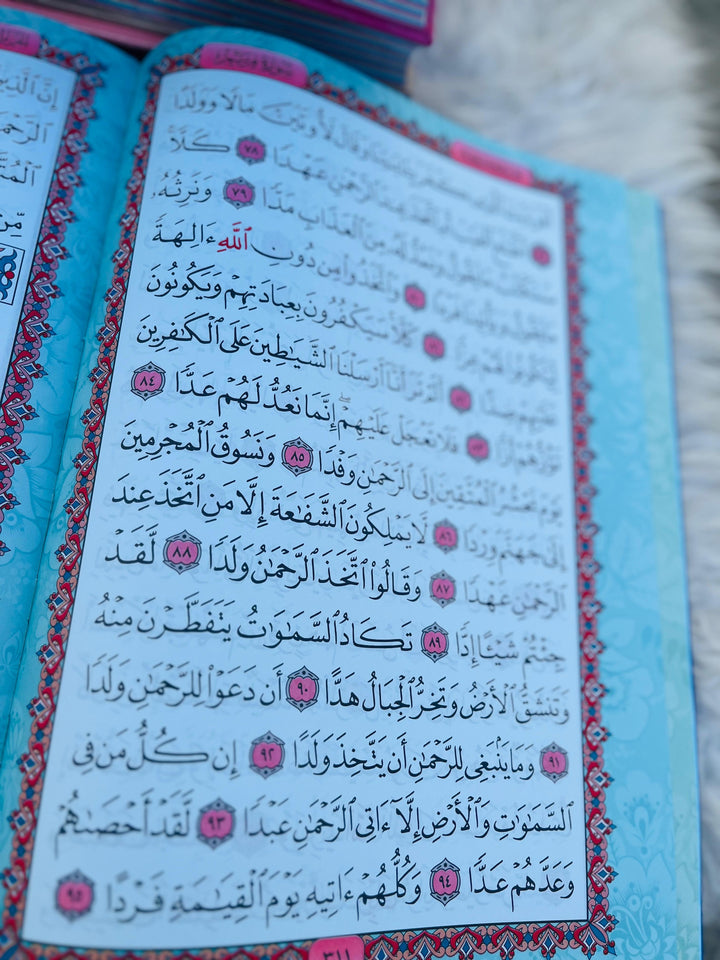 وَقَالَ لَأُوتَيَنَّ مَالًا وَوَلَدًا
عِندَ ٱلرَّحْمَٰنِ عَهْدًا ٧٨ كَلَّا
سَنَكْتُبُ مَا يَقُولُ وَنَمُدُّ لَهُۥ مِنَ ٱلْعَذَابِ مَدًّا ٧٩ وَنَرِثُهُۥ
مَا يَقُولُ وَيَأْتِينَا فَرْدًا ٨٠ وَٱتَّخَذُوا۟ مِن دُونِ ٱللَّهِ ءَالِهَةً
لِّيَكُونُوا۟ لَهُمْ عِزًّا ٨١ كَلَّا سَيَكْفُرُونَ بِعِبَادَتِهِمْ وَيَكُونُونَ
عَلَيْهِمْ ضِدًّا ٨٢ أَلَمْ تَرَ أَنَّآ أَرْسَلْنَا ٱلشَّيَٰطِينَ عَلَى ٱلْكَٰفِرِينَ
تَؤُزُّهُمْ أَزًّا ٨٣ فَلَا تَعْجَلْ عَلَيْهِمْ ۖ إِنَّمَا نَعُدُّ لَهُمْ عَدًّا ٨٤
يَوْمَ نَحْشُرُ ٱلْمُتَّقِينَ إِلَى ٱلرَّحْمَٰنِ وَفْدًا ٨٥ وَنَسُوقُ ٱلْمُجْرِمِينَ
إِلَىٰ جَهَنَّمَ وِرْدًا ٨٦ لَّا يَمْلِكُونَ ٱلشَّفَٰعَةَ إِلَّا مَنِ ٱتَّخَذَ عِندَ
ٱلرَّحْمَٰنِ عَهْدًا ٨٧ وَقَالُوا۟ ٱتَّخَذَ ٱلرَّحْمَٰنُ وَلَدًا ٨٨ لَّقَدْ
جِئْتُمْ شَيْـًٔا إِدًّا ٨٩ تَكَادُ ٱلسَّمَٰوَٰتُ يَتَفَطَّرْنَ مِنْهُ
وَتَنشَقُّ ٱلْأَرْضُ وَتَخِرُّ ٱلْجِبَالُ هَدًّا ٩٠ أَن دَعَوْا۟ لِلرَّحْمَٰنِ وَلَدًا
٩١ وَمَا يَنۢبَغِى لِلرَّحْمَٰنِ أَن يَتَّخِذَ وَلَدًا ٩٢ إِن كُلُّ مَن فِى
ٱلسَّمَٰوَٰتِ وَٱلْأَرْضِ إِلَّآ ءَاتِى ٱلرَّحْمَٰنِ عَبْدًا ٩٣ لَّقَدْ أَحْصَىٰهُمْ
وَعَدَّهُمْ عَدًّا ٩٤ وَكُلُّهُمْ ءَاتِيهِ يَوْمَ ٱلْقِيَٰمَةِ فَرْدًا ٩٥
٣١١